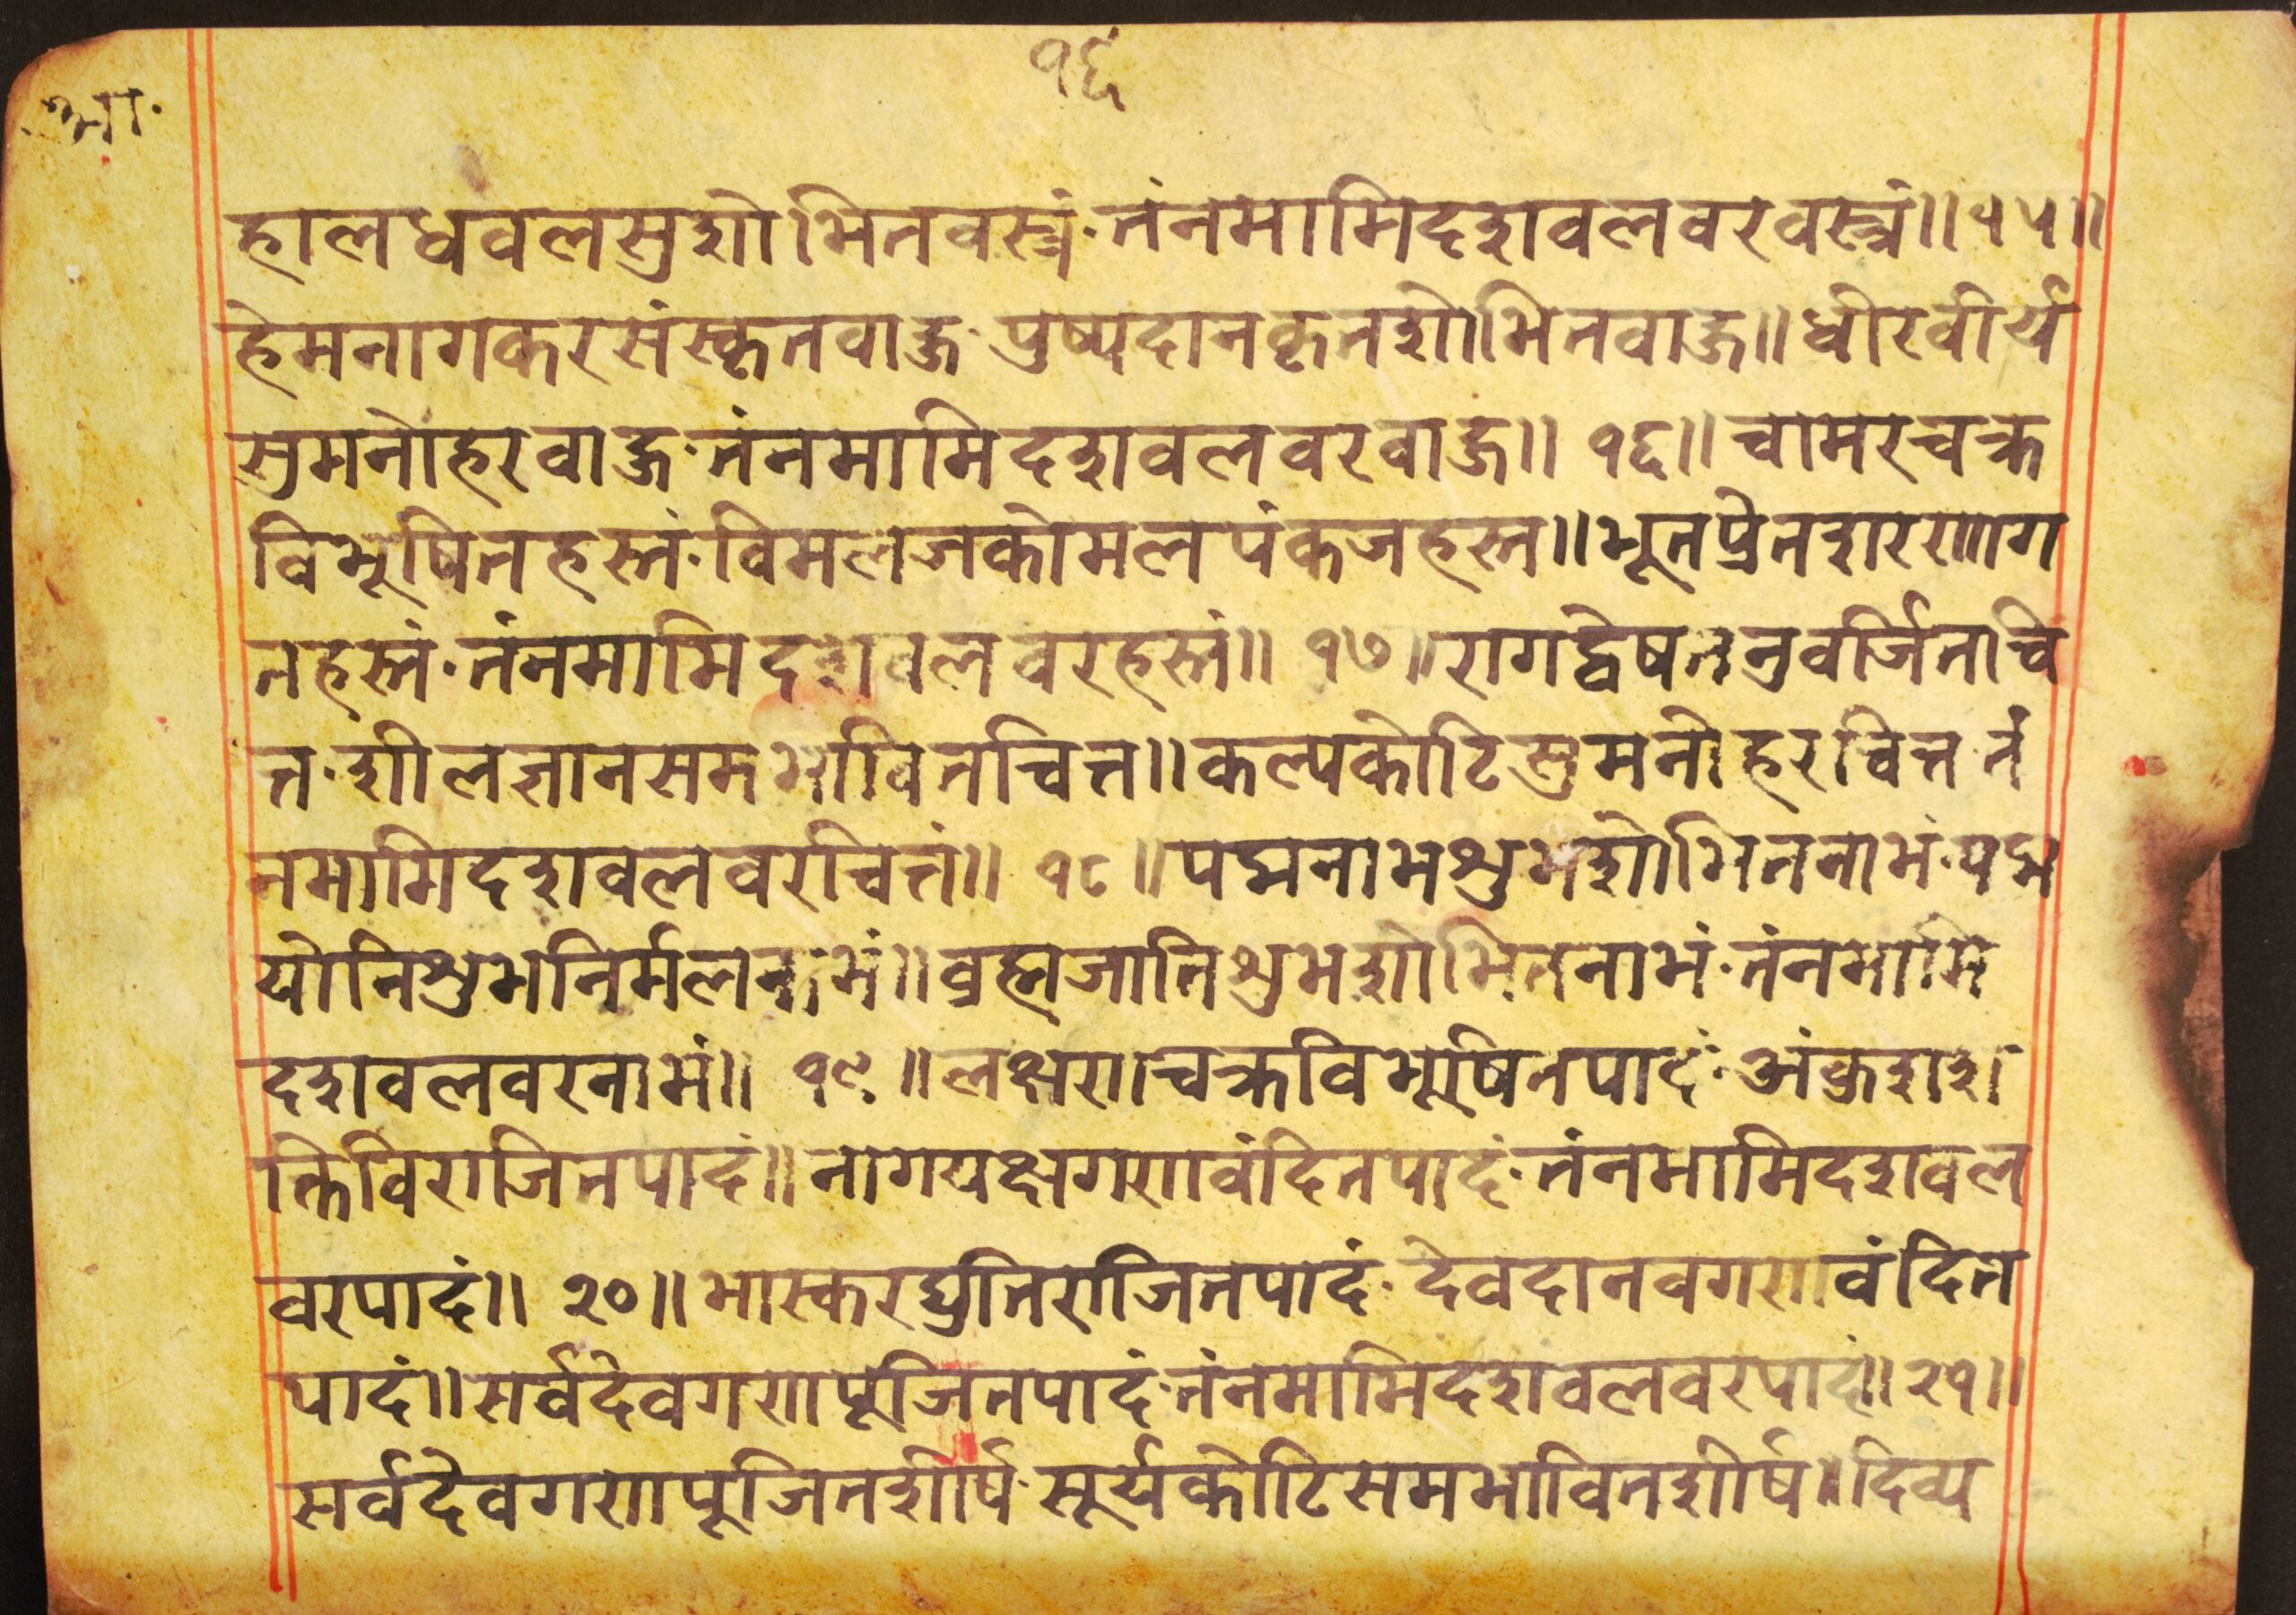 १६
हालधवलसुशोभितवस्त्रं·तंनमामिदशवलवरवस्त्रं॥१५॥
हेमनागकरसंस्कृतवाहु·पुष्पदानकृतशोभितवाहु॥धीरवीर्य
सुमनोहरवाहु·तंनमामिदशवलवरवाहु॥१६॥चामरचक्र
विभूषितहस्तं·विमलजकोमलपंकजहस्त॥भूतप्रेतशरणाग
तहस्तं·तंनमामिदशवलवरहस्तं॥१७॥रागद्वेषतनुवर्जितचि
त्त·शीलज्ञानसमभावितचित्त॥कल्पकोटिसुमनोहरचित्त·तं
नमामिदशवलवरचित्तं॥१८॥पद्मनाभशुभशोभितनाभं·पद्म
योनिशुभनिर्मलनाभं॥व्रह्मजातिशुभशोभितनाभं·तंनमामि
दशवलवरनाभं॥१९॥लक्षणचक्रविभूषितपादं·अंकुशश
क्तिविराजितपादं॥नागयक्षगणवंदितपादं·तंनमामिदशवल
वरपादं॥२०॥भास्करद्युतिराजितपादं·देवदानवगणवंदित
पादं॥सर्वदेवगणपूजितपादं·तंनमामिदशवलवरपादं॥२१॥
सर्वदेवगणपूजितशीर्ष·सूर्यकोटिसमभावितशीर्ष॥दिव्य